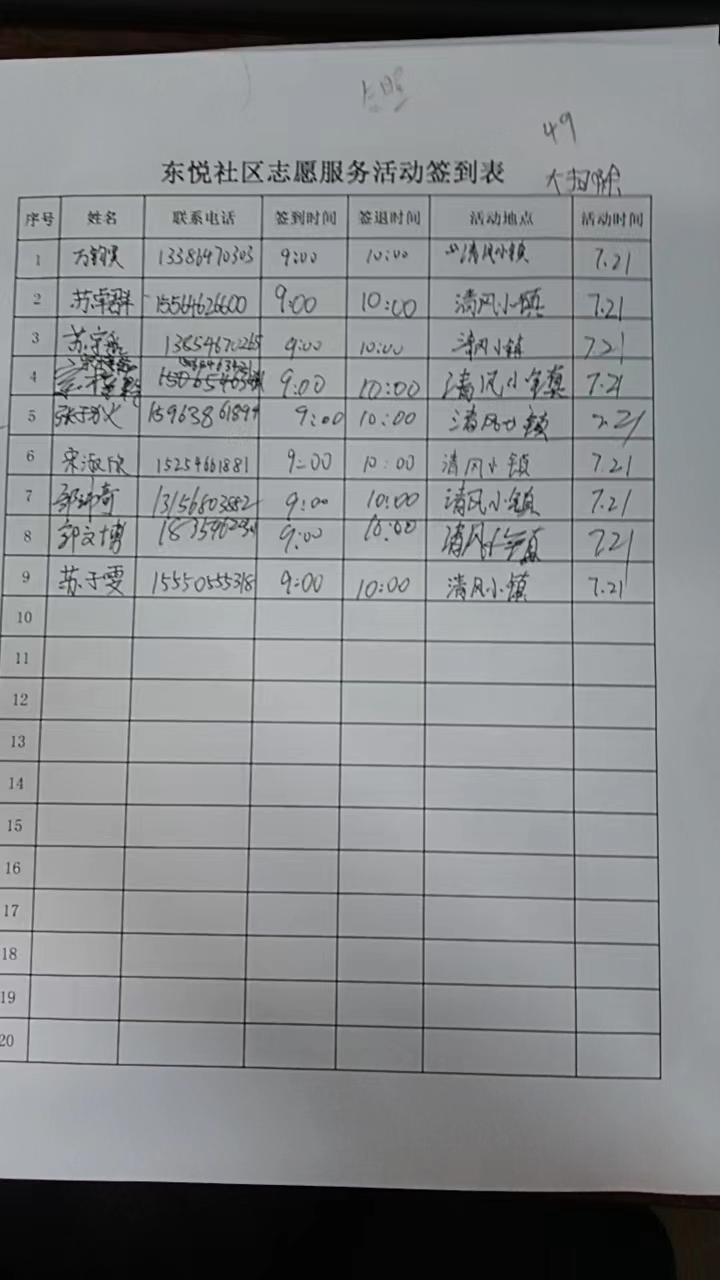 49
大扫除
东悦社区志愿服务活动签到表
序号 姓名 联系电话 签到时间 签退时间 活动地点 活动时间
1 13386470303 9:00 10:00 清风小镇 7.21
2 苏卓群 15564626600 9:00 10:00 清风小镇 7.21
3 苏宇航 13854670265 9:00 10:00 清风小镇 7.21
4 9:00 10:00 清风小镇 7.21
5 15963861894 9:00 10:00 清风小镇 7.21
6 宋淑欣 15254661881 9:00 10:00 清风小镇 7.21
7 13156803882 9:00 10:00 清风小镇 7.21
8 郭文博 9:00 10:00 清风小镇 7.21
9 苏子雯 15550555318 9:00 10:00 清风小镇 7.21
10
11
12
13
14
15
16
17
18
19
20